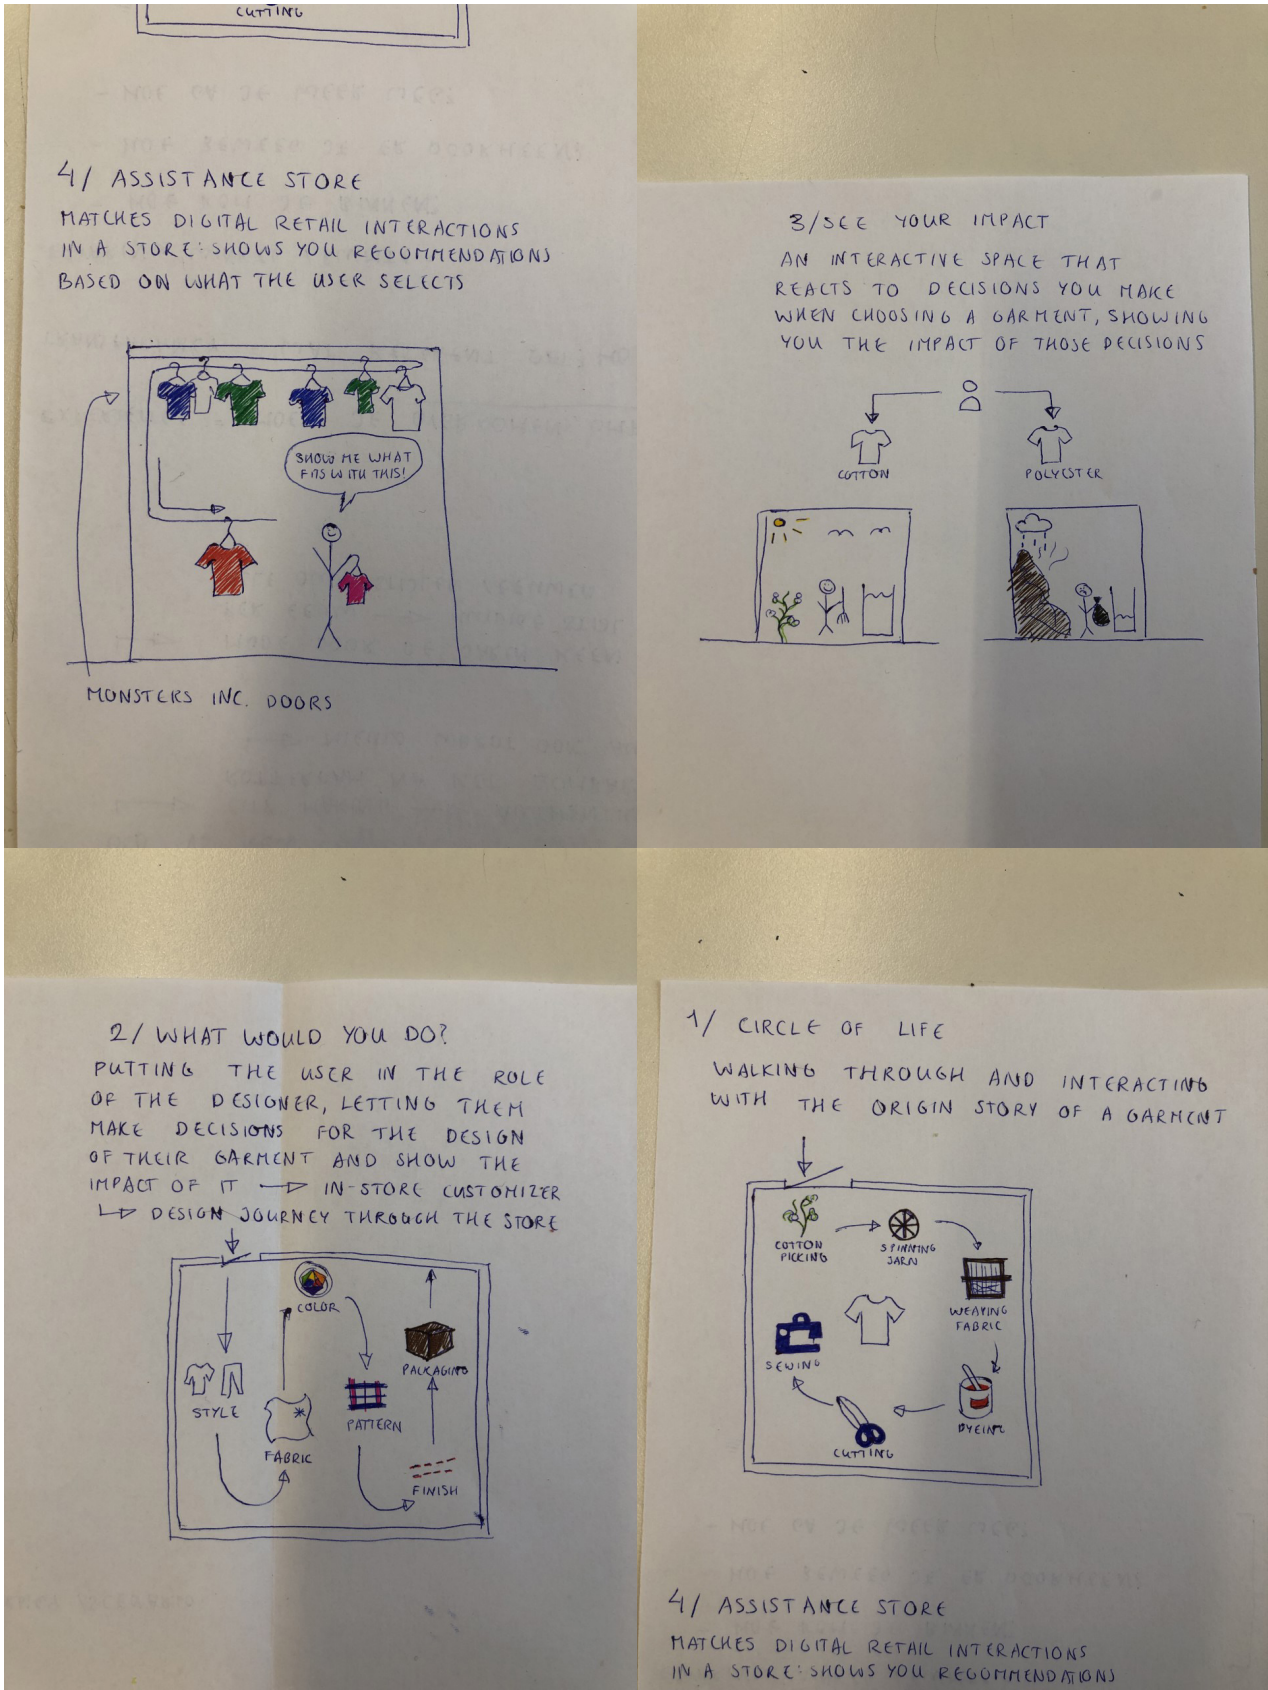 CUTTING
4/ ASSISTANCE STORE
MATCHES DIGITAL RETAIL INTERACTIONS
IN A STORE: SHOWS YOU RECOMMENDATIONS
BASED ON WHAT THE USER SELECTS
SHOW ME WHAT
FITS WITH THIS!
MONSTERS INC. DOORS
3/ SEE YOUR IMPACT
AN INTERACTIVE SPACE THAT
REACTS TO DECISIONS YOU MAKE
WHEN CHOOSING A GARMENT, SHOWING
YOU THE IMPACT OF THOSE DECISIONS
COTTON
POLYESTER
2/ WHAT WOULD YOU DO?
PUTTING THE USER IN THE ROLE
OF THE DESIGNER, LETTING THEM
MAKE DECISIONS FOR THE DESIGN
OF THEIR GARMENT AND SHOW THE
IMPACT OF IT → IN-STORE CUSTOMIZER
↳ DESIGN JOURNEY THROUGH THE STORE
COLOR
PACKAGING
STYLE
PATTERN
FABRIC
FINISH
1/ CIRCLE OF LIFE
WALKING THROUGH AND INTERACTING
WITH THE ORIGIN STORY OF A GARMENT
COTTON
PICKING
SPINNING
JARN
WEAVING
FABRIC
SEWING
DYEING
CUTTING
4/ ASSISTANCE STORE
MATCHES DIGITAL RETAIL INTERACTIONS
IN A STORE: SHOWS YOU RECOMMENDATIONS